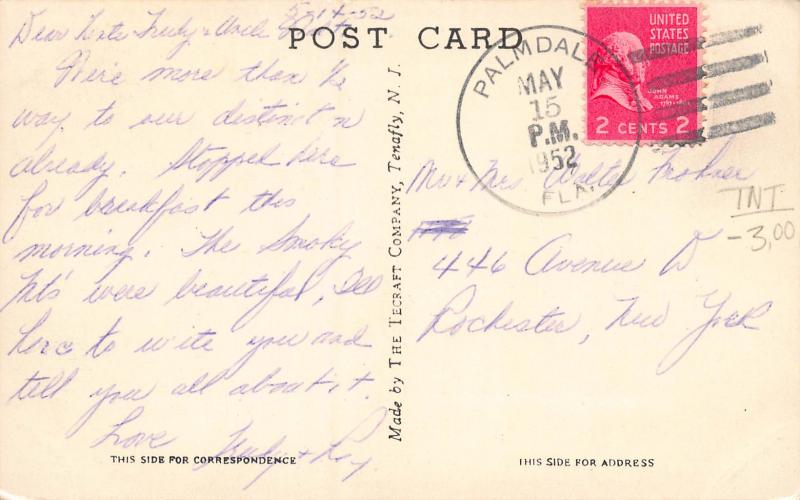 5-14-52
POST CARD
Dear Trudy + Uncle
We're more than ½
way to our
already. Stopped here
for breakfast this
morning. The Smoky
Mts were beautiful, Ill
have to write you and
tell you all about it.
Love
Trudy + Roy.
THIS SIDE FOR CORRESPONDENCE
Made by THE TECRAFT COMPANY, Tenafly, N. J.
PALMDALE
MAY
15
P.M.
1952
FLA.
UNITED
STATES
POSTAGE
JOHN
ADAMS
2 CENTS 2
Mr + Mrs. Walter
446 Avenue D
Rochester, New York
TNT
-3.00
THIS SIDE FOR ADDRESS